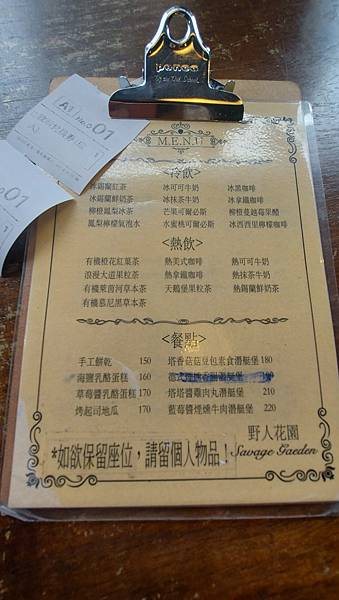 A1 No.01
No.01
PONEE
M.E.N.U
<冷飲>
冰錫蘭紅茶 冰可可牛奶 冰黑咖啡
冰錫蘭鮮奶茶 冰抹茶牛奶 冰拿鐵咖啡
柳橙鳳梨冰茶 芒果可爾必斯 柳橙蔓越莓果醋
鳳梨檸檬氣泡水 水蜜桃可爾必斯 冰西西里檸檬咖啡
<熱飲>
有機橙花紅葉茶 熱美式咖啡 熱可可牛奶
浪漫大道果粒茶 熱拿鐵咖啡 熱抹茶牛奶
有機萊茵河草本茶 天鵝堡果粒茶 熱錫蘭鮮奶茶
有機慕尼黑草本茶
<餐點>
手工餅乾 150 塔香菇菇豆包素食潛艇堡 180
海鹽乳酪蛋糕 160
草莓醬乳酪蛋糕 170 塔塔醬雞肉丸潛艇堡 210
烤起司地瓜 170 藍莓醬煙燻牛肉潛艇堡 220
野人花園
Savage Gaeden
*如欲保留座位，請留個人物品！